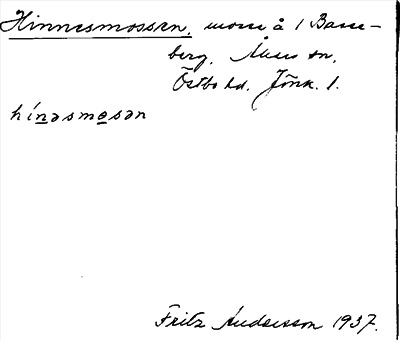 Hinnesmossen, mosse å 1 Basse-
berg, Åkers sn,
Östbo hd. Jönk. l.
hínəsmosən
Fritz Andersson 1937.